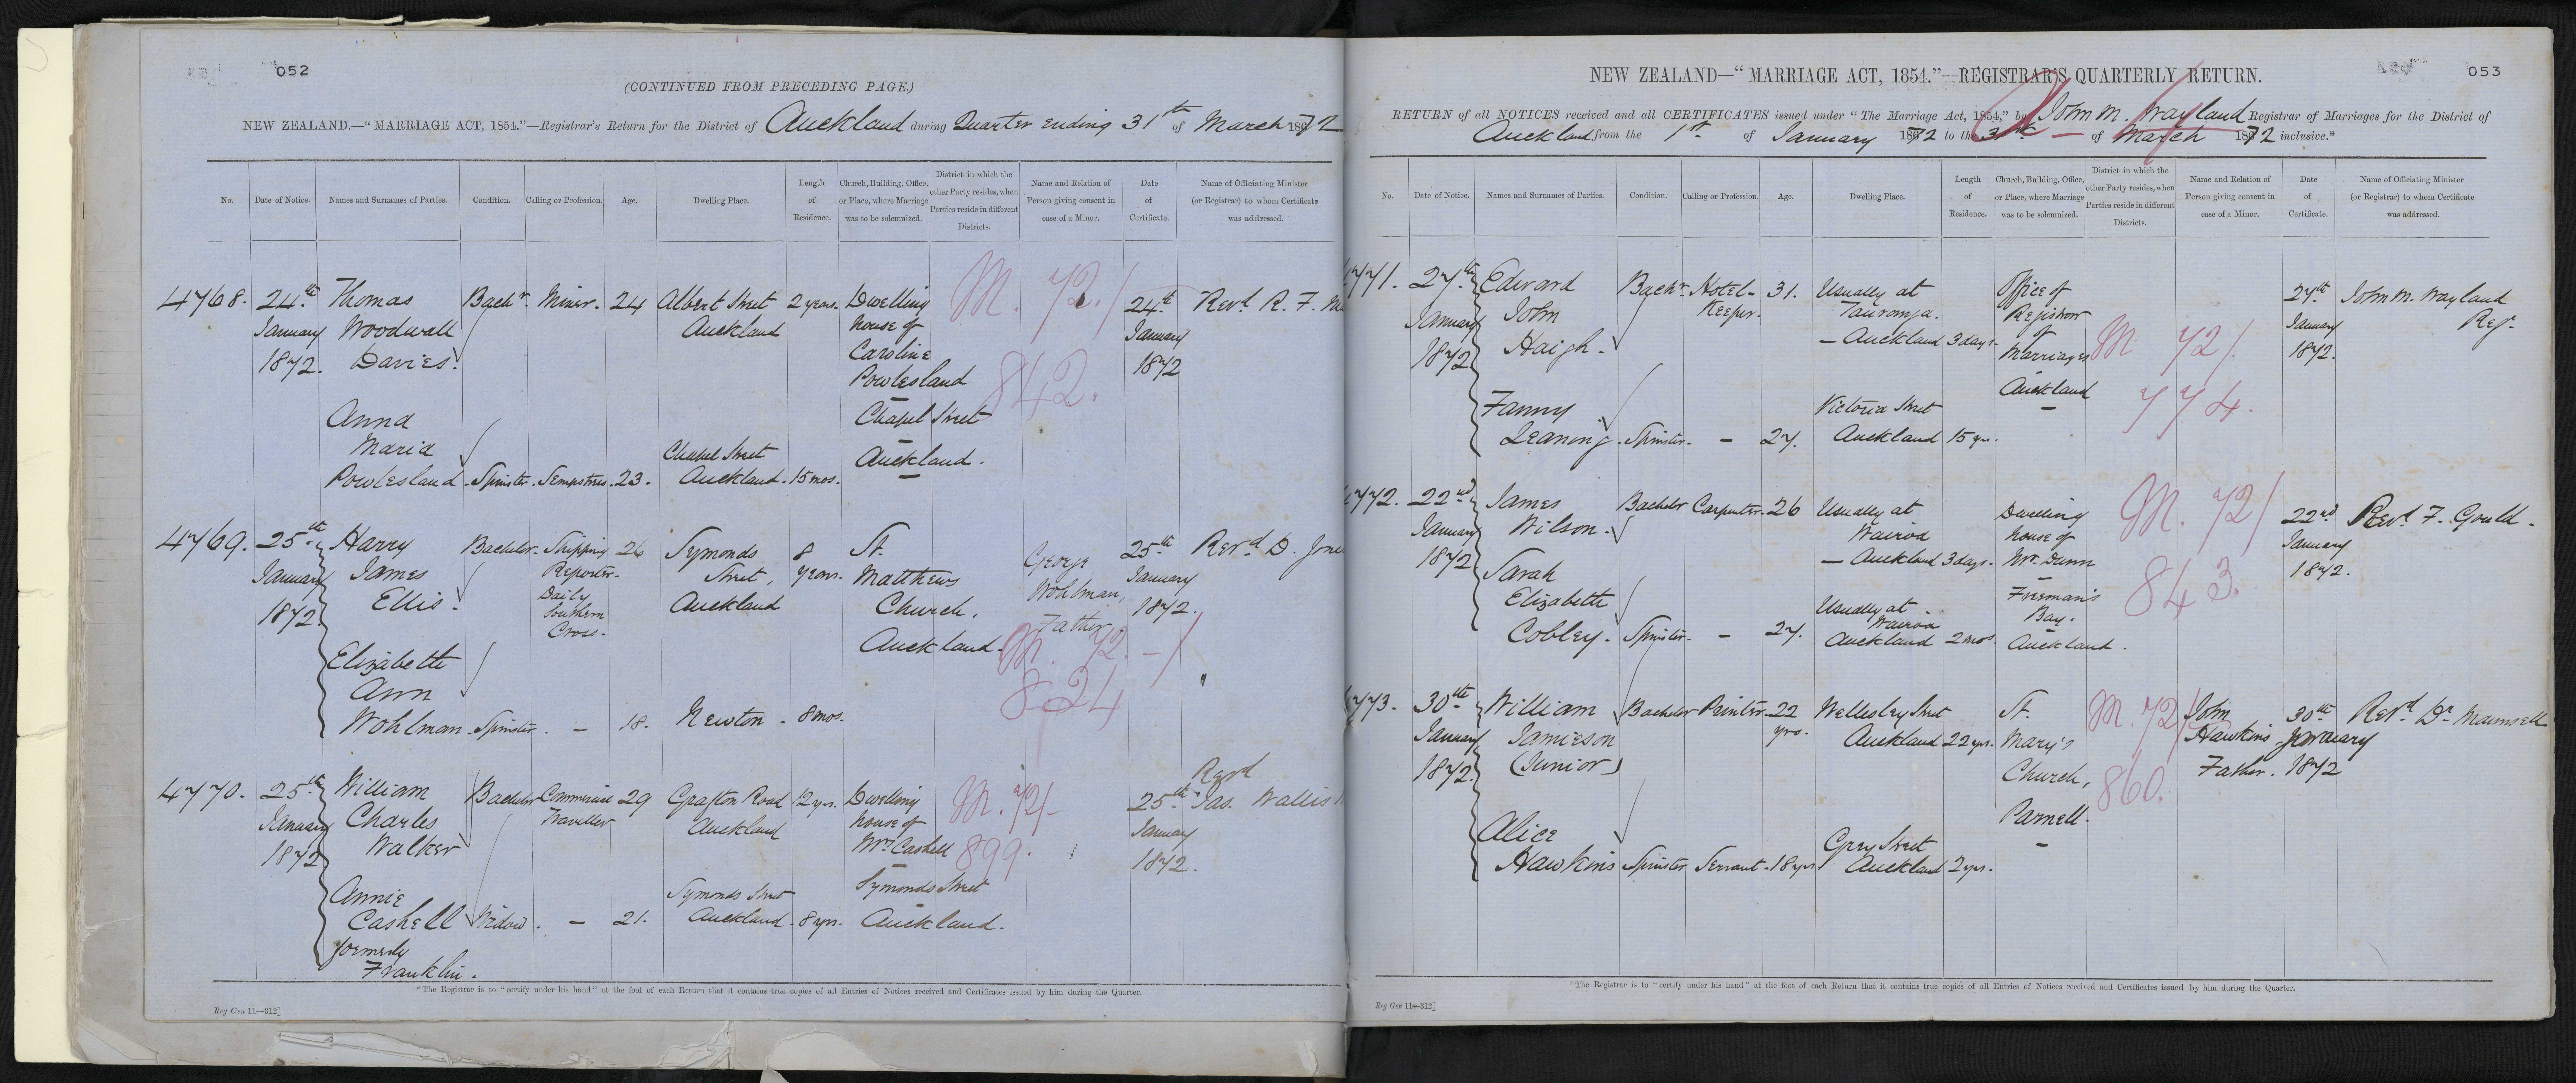 052
(CONTINUED FROM PRECEDING PAGE.)
NEW ZEALAND.—"MARRIAGE ACT, 1854."—Registrar's Return for the District of Auckland during Quarter ending 31th of March 1872
No.
Date of Notice.
Names and Surnames of Parties.
Condition.
Calling or Profession.
Age.
Dwelling Place.
Length of Residence.
Church, Building, Office, or Place, where Marriage was to be solemnized.
District in which the other Party resides, when Parties reside in different Districts.
Name and Relation of Person giving consent in case of a Minor.
Date of Certificate.
Name of Officiating Minister (or Registrar) to whom Certificate was addressed.
4768. 24th January 1872.
Thomas Woodwall Davies. Bachr. Miner. 24 Albert Street Auckland 2 years.
Anna Maria Powlesland. Spinster. Sempstress. 23. Chapel Street Auckland. 15 mos.
Dwelling house of Caroline Powlesland Chapel Street Auckland.
M. 72./ 842.
24th January 1872
Revd. R. F.
4769. 25th January 1872
Harry James Ellis. Bachelor. Shipping Reporter. Daily Southern Cross. 26 Symonds Street, Auckland 8 years.
Elizabeth Ann Wohlman. Spinster. — 18. Newton. 8 mos.
St. Matthews Church, Auckland.
George Wohlman, Father
M. 72.—/ 824
25th January 1872.
Revd D.
"
4770. 25th January 1872
William Charles Walker Bachelor Commercial Traveller 29 Grafton Road Auckland 12 yrs.
Annie Cashell formerly Franklin. Widow. — 21. Symonds Street Auckland. 8 yrs.
Dwelling house of Mrs Cashell Symonds Street Auckland.
M. 72/- 899.
25th January 1872.
Revd Jas. Wallis
*The Registrar is to "certify under his hand" at the foot of each Return that it contains true copies of all Entries of Notices received and Certificates issued by him during the Quarter.
Reg Gen 11—312]
053
NEW ZEALAND—"MARRIAGE ACT, 1854."—REGISTRAR'S QUARTERLY RETURN.
RETURN of all NOTICES received and all CERTIFICATES issued under "The Marriage Act, 1854," by John M. Wayland Registrar of Marriages for the District of
Auckland from the 1st of January 1872 to the 31th of March 1872 inclusive.*
No.
Date of Notice.
Names and Surnames of Parties.
Condition.
Calling or Profession.
Age.
Dwelling Place.
Length of Residence.
Church, Building, Office, or Place, where Marriage was to be solemnized.
District in which the other Party resides, when Parties reside in different Districts.
Name and Relation of Person giving consent in case of a Minor.
Date of Certificate.
Name of Officiating Minister (or Registrar) to whom Certificate was addressed.
4771. 27th January 1872
Edward John Haigh. Bachr. Hotel-Keeper. 31. Usually at Tauranga. — Auckland 3 days.
Fanny Leaning. Spinster. — 27. Victoria Street Auckland 15 yrs.
Office of Registrar of Marriages Auckland
M 72/. 774.
27th January 1872.
John M. Wayland Reg.
4772. 22nd January 1872
James Wilson. Bachelor Carpenter. 26 Usually at Wairoa — Auckland 3 days.
Sarah Elizabeth Cobley. Spinster. — 27. Usually at Wairoa Auckland 2 mos.
Dwelling house of Mr. Dunn Freeman's Bay. Auckland.
M. 72/ 843.
22nd January 1872.
Revd. F. Gould.
4773. 30th January 1872
William Jamieson (Junior) Bachelor Printer 22 yrs. Wellesley Street Auckland 22 yrs.
Alice Hawkins Spinster Servant. 18 yrs Grey Street Auckland 2 yrs.
St. Mary's Church, Parnell.
M. 72/ 860.
John Hawkins Father.
30th January 1872
Revd Dr Maunsell
*The Registrar is to "certify under his hand" at the foot of each Return that it contains true copies of all Entries of Notices received and Certificates issued by him during the Quarter.
Reg Gen 11—312]